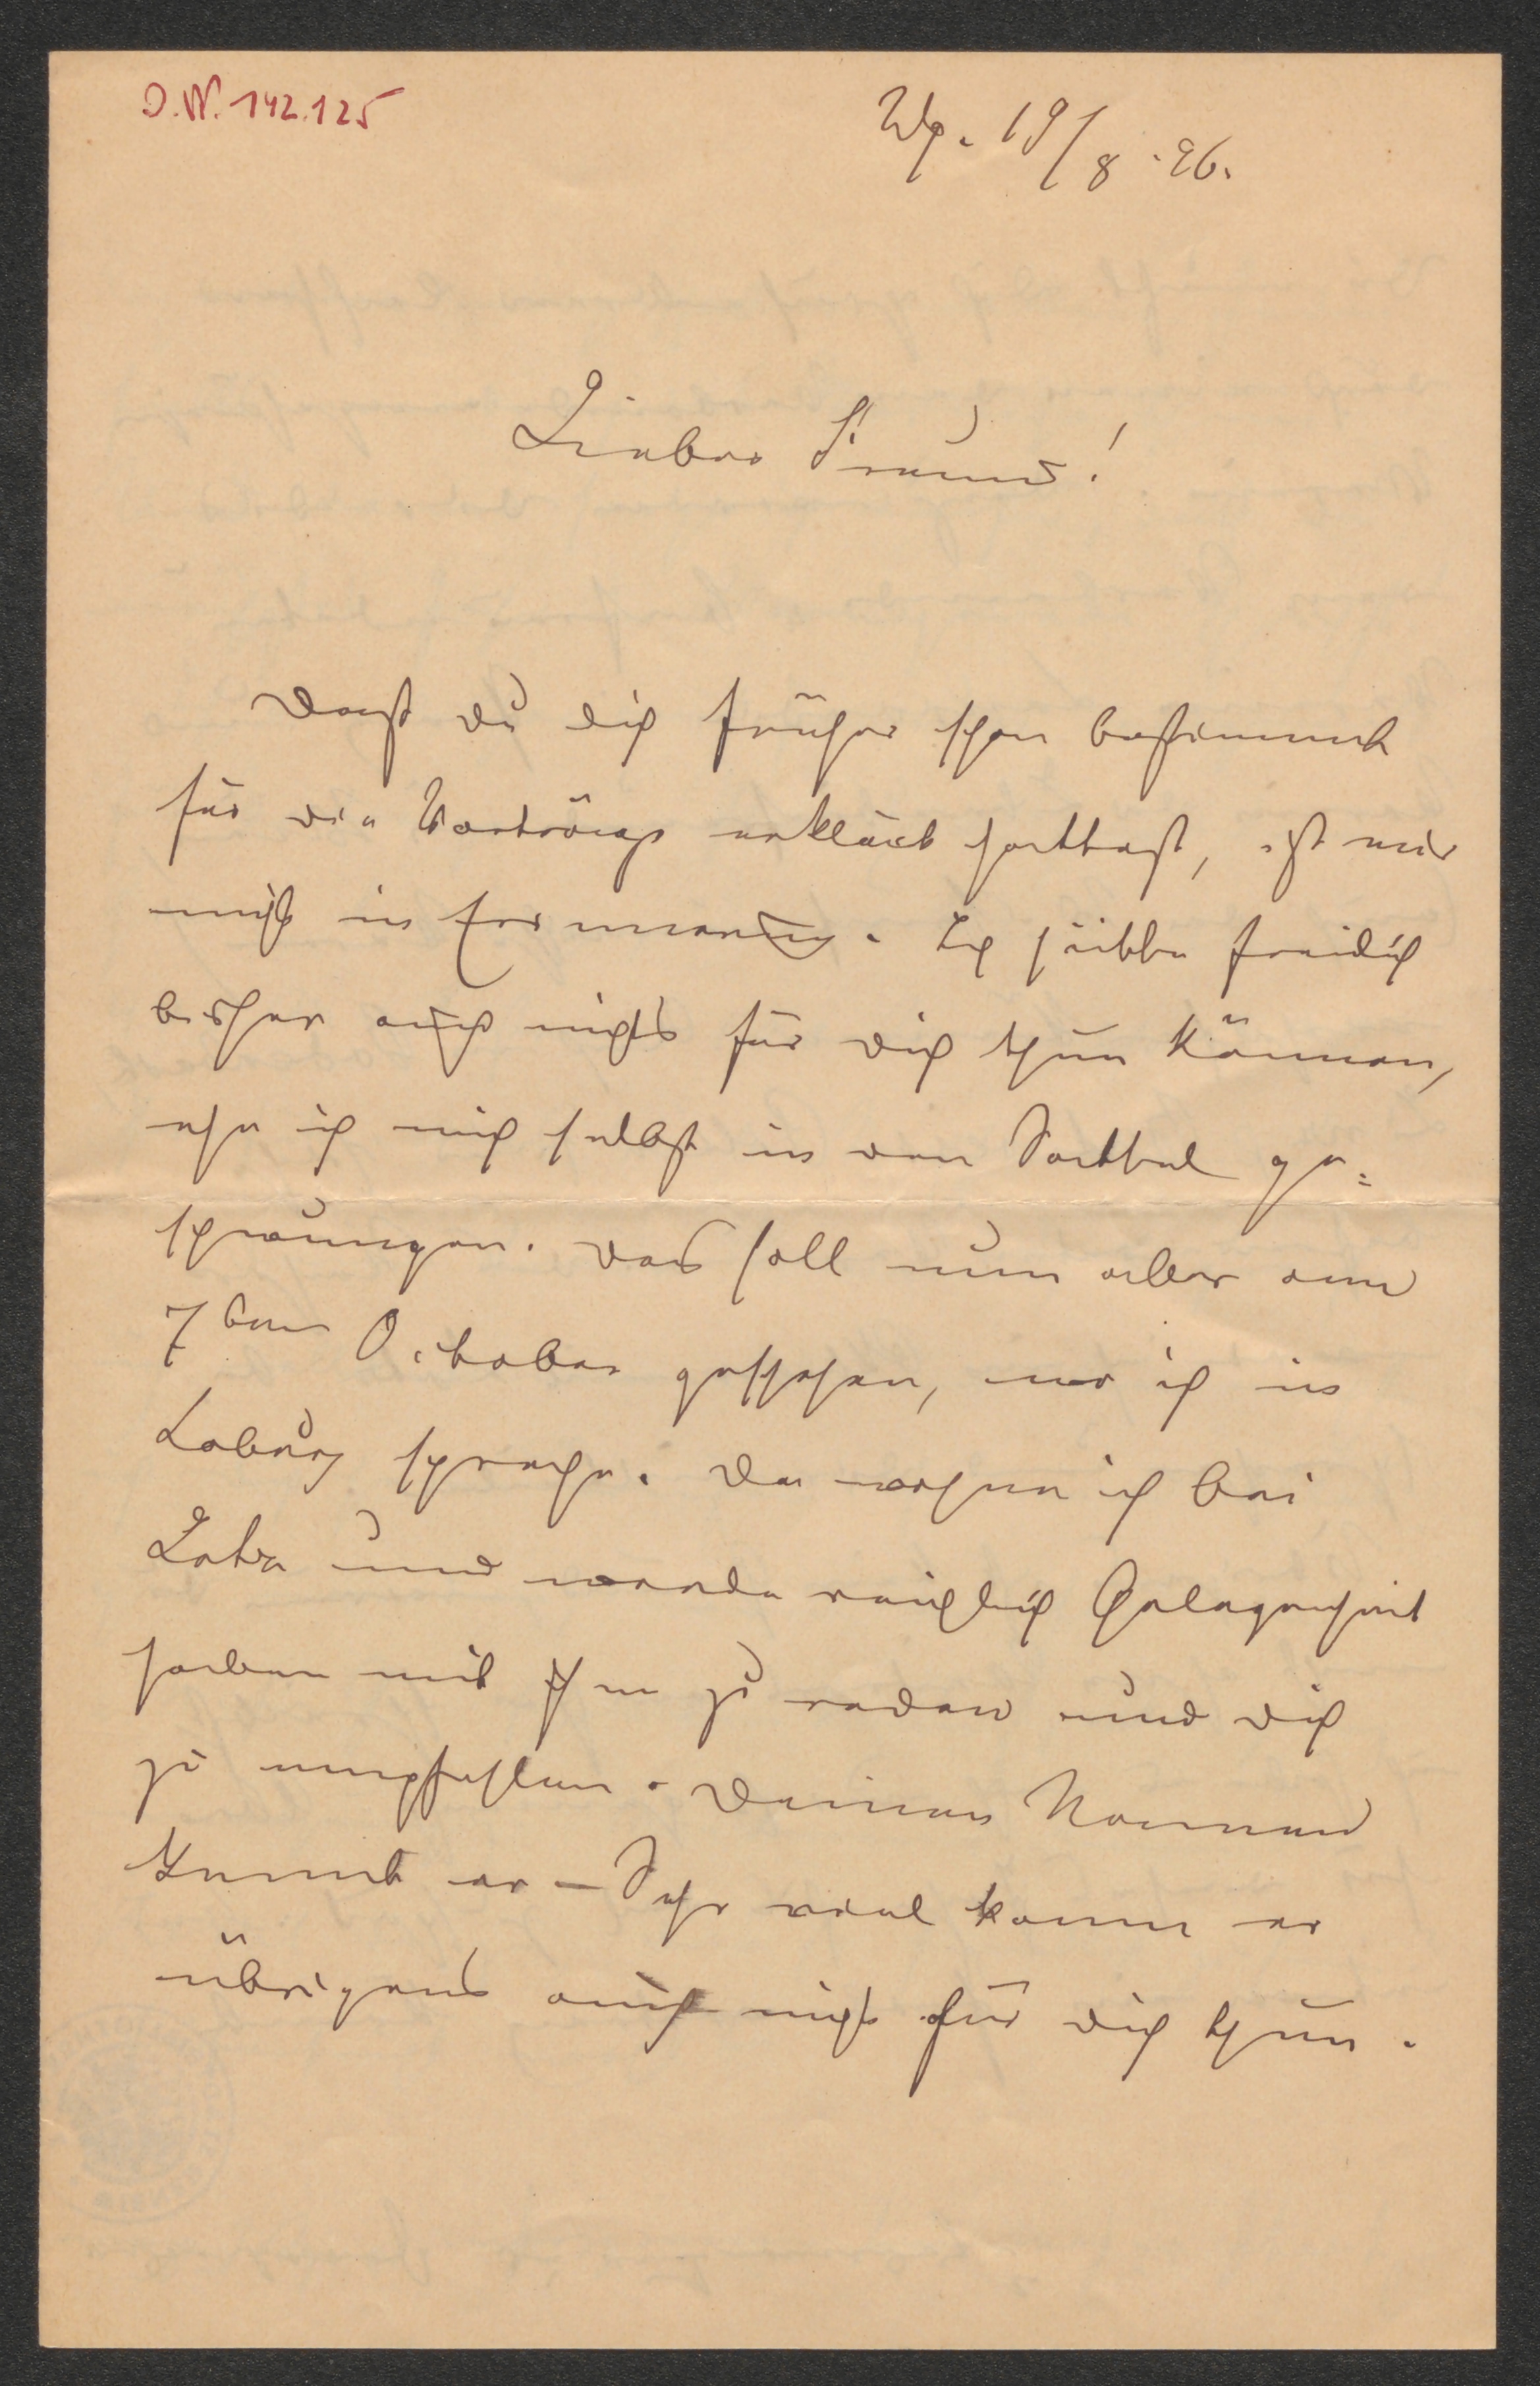 I.N. 142.125
19/8.96.
Lieber Freund!
Dass du dich früher schon bestimmt
für die Vorträge erklärt hattest, ist mir
nicht in Erinnerung. Ich hätte freilich
bisher auch nichts für dich thun können,
ehe ich mich selbst in den Sattel ge=
schwungen. Das soll nun aber am
7ten October geschehen, wo ich in
Coburg spreche. Da wohne ich bei
und werde reichlich Gelegenheit
haben mit Ihm zu reden und dich
zu empfehlen. Deinen Namen
kennt er – Sehr viel kann er
übrigens auch nicht für dich thun.